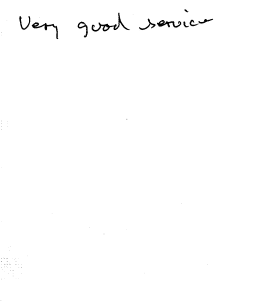 Very good service